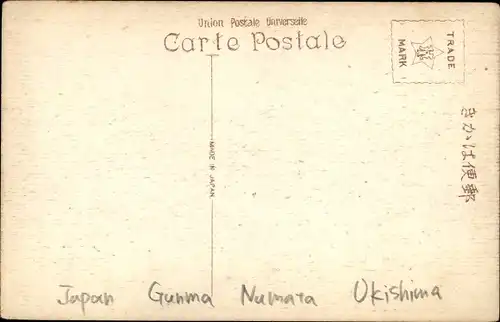 Union Postale Universelle
Carte Postale
TRADE
MARK
MADE IN JAPAN
きかは便郵
Japan Gunma Numata Ukishima